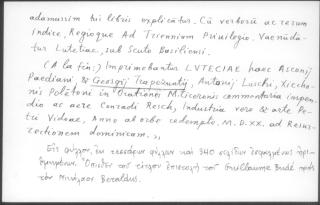 adamussim tui libris explicâtur. Cū verborū ac rerum
indice, Regióque Ad Triennium Privilegio. Vaenūda-
tur Lutetiae, sub Scuto Basiliensi.
(A la fin:) Imprimebantur LVTECIAE haec Asconij
Paediani, & Georgij Trapezuntij, Antonij Luschi, Xiccho-
nis Polētoni in Orationes M. Ciceronis commentaria impen-
dio ac aere Conradi Resch, Industria vero & arte Pe-
tri Vidoue, Anno ab orbe redempto. M.D.XX. ad Resur-
rectionem dominicam.»
Εἰς φύλλον, ἐκ τεσσάρων φύλλων καὶ 340 σελίδων ἐσφαλμένως ἠρι-
θμημένων. Ὄπισθεν τοῦ τίτλου ἐπιστολὴ τοῦ Guillaume Budé πρὸς
τὸν Νικόλαον Beraldus.